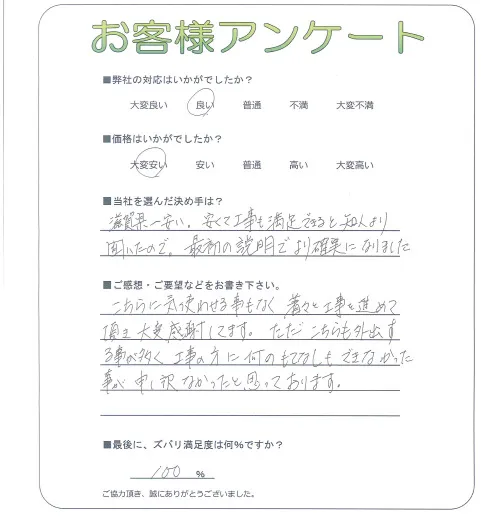 お客様アンケート
■弊社の対応はいかがでしたか？
大変良い 良い 普通 不満 大変不満
■価格はいかがでしたか？
大変安い 安い 普通 高い 大変高い
■当社を選んだ決め手は？
滋賀県一安い。安くて工事も満足できると知人より
聞いたので。最初の説明でより確実になりました
■ご感想・ご要望などをお書き下さい。
こちらに気を使わせる事もなく着々と工事を進めて
頂き大変感謝してます。ただこちらも外出す
る事が多く工事の方に何のもてなしもできなかった
事が申し訳なかったと思っております。
■最後に、ズバリ満足度は何%ですか？
100 %
ご協力頂き、誠にありがとうございました。